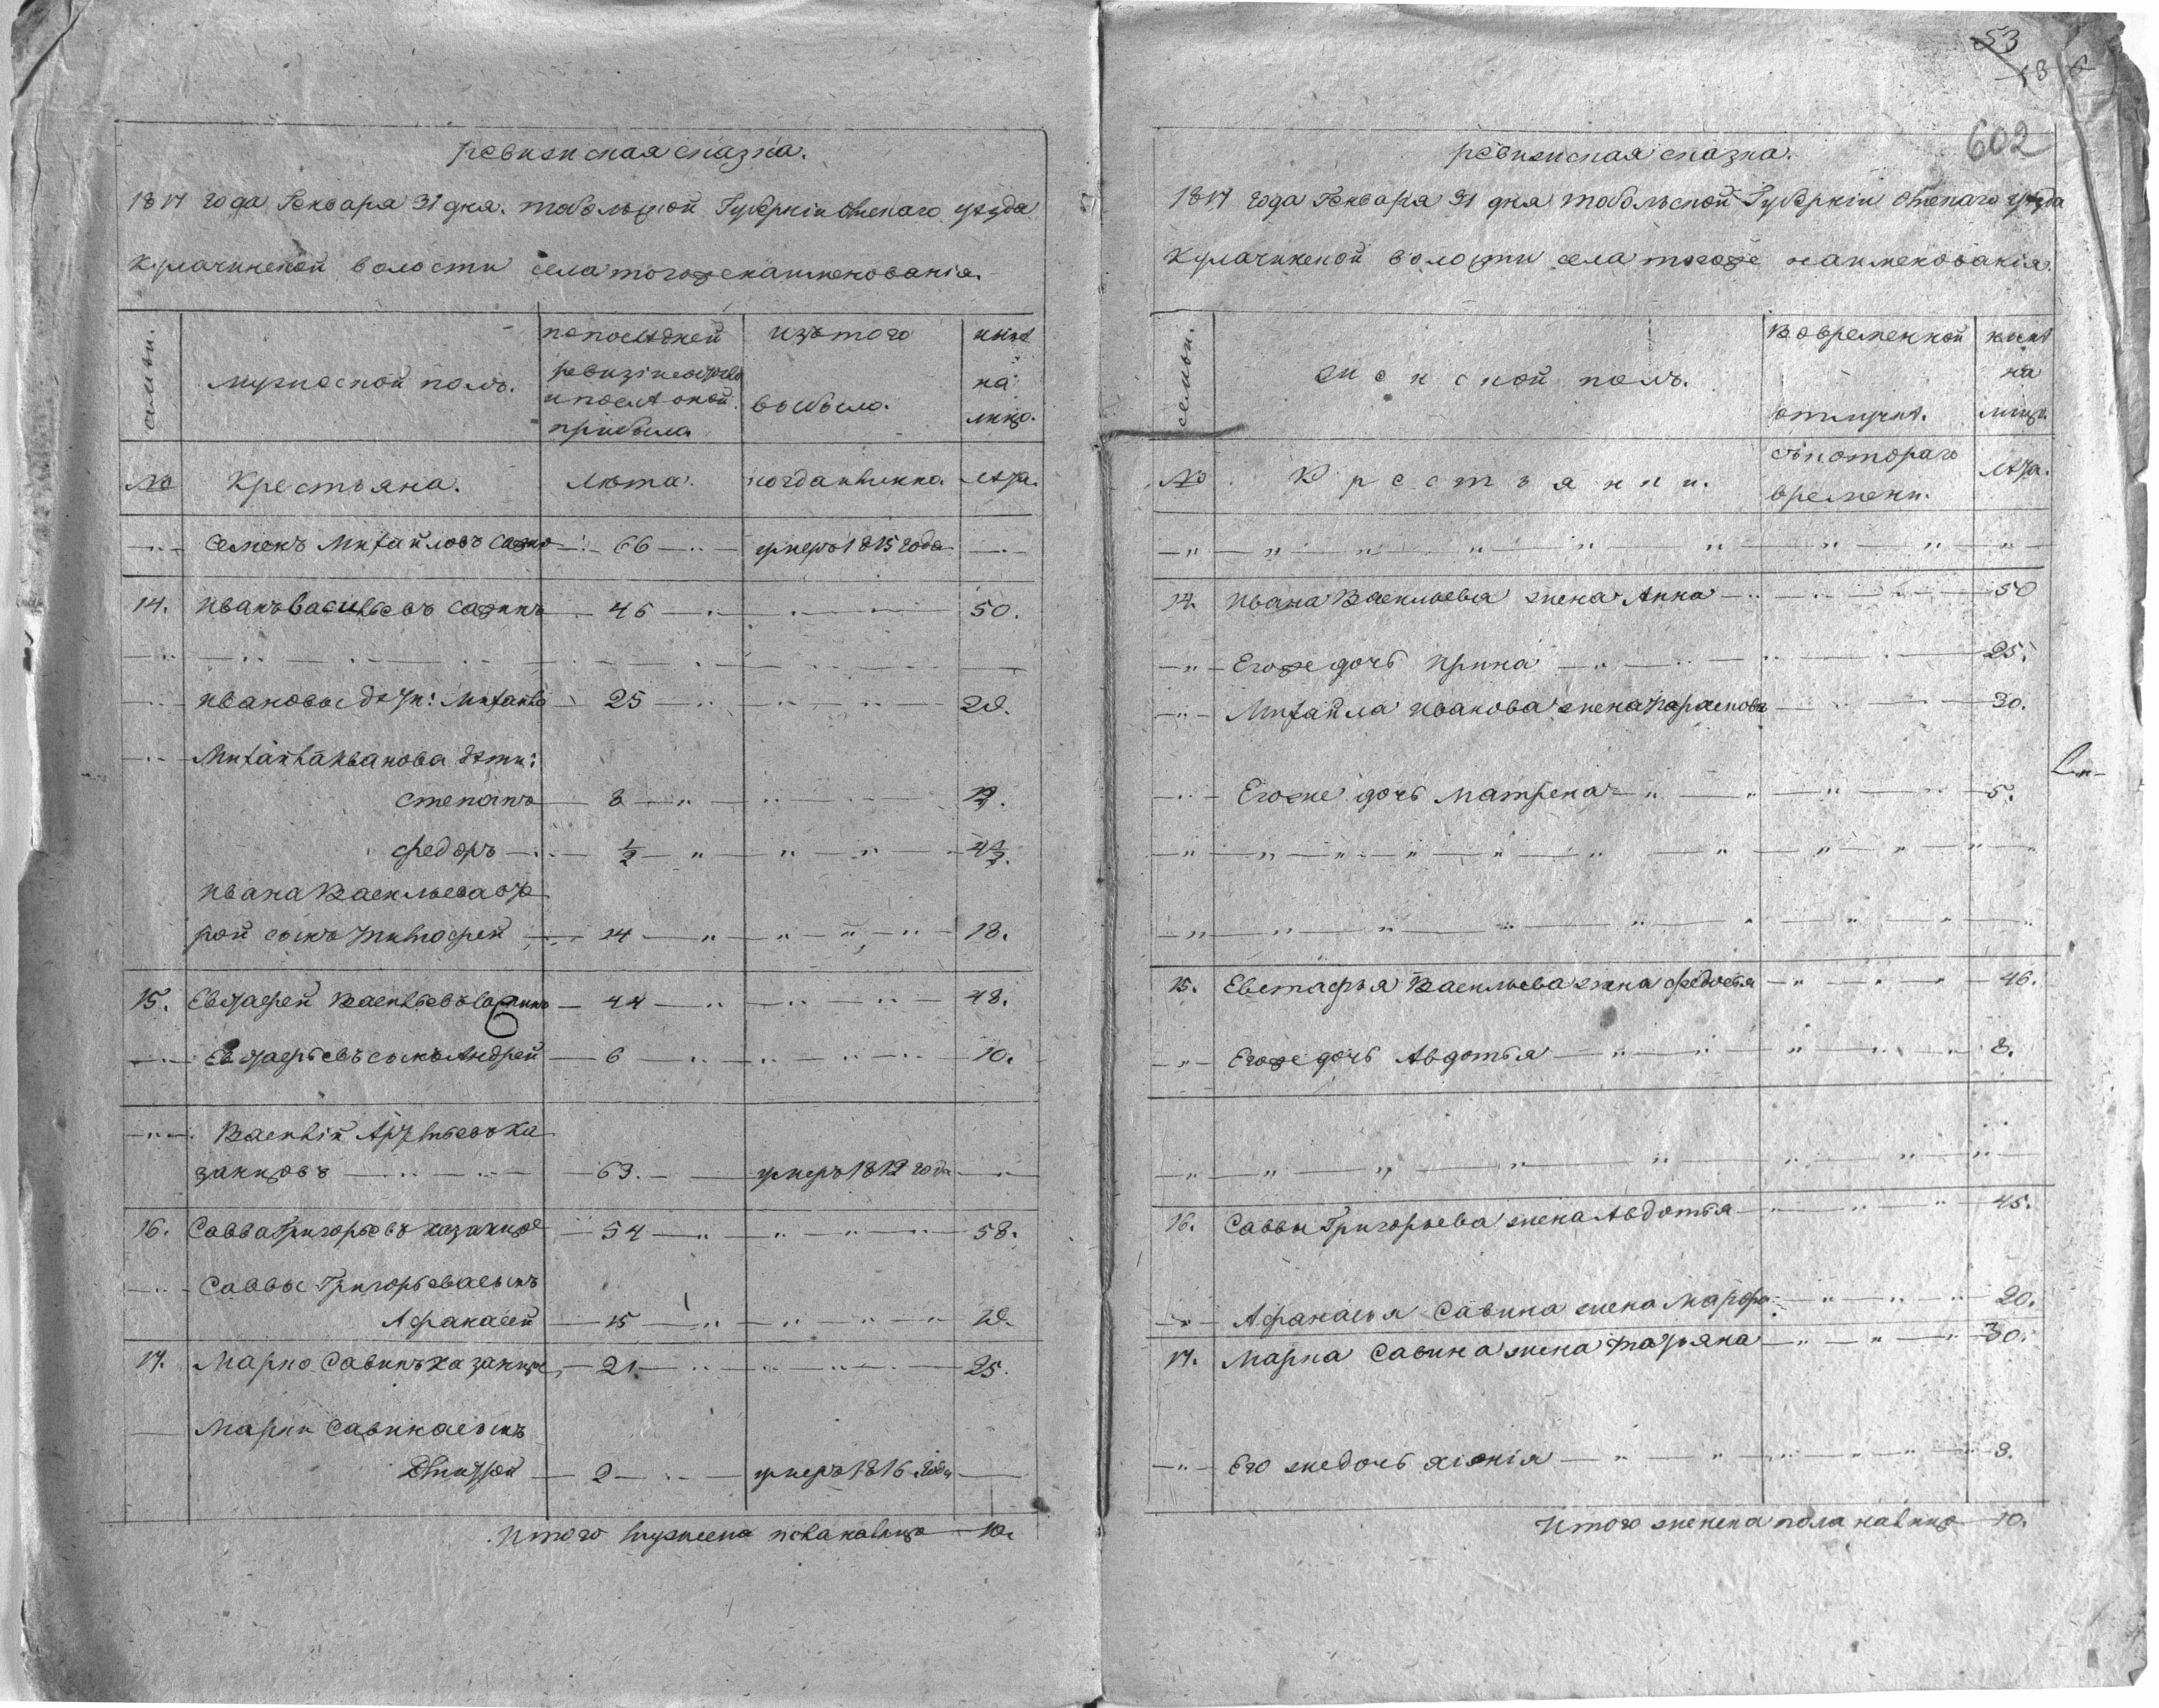 ревизская сказка.
1817 года Генваря 31 дня. тобольской Губернiи Омскаго уезда
Кулачинской волости села тогоже наименованiя.
семьи.
мужеской полъ.
попоследней
ревизiи состояло
и после оной
прибыло
изътого
выбыло.
ныне
на
лицо.
№
Крестьяна.
Лета.
когда имянно.
лета.
Семенъ Михайловъ 66 умеръ 1815 года
14. Иванъ Васильевъ Сажинъ 46 50.
Ивановы дети: Михайло 25 29.
Михайла Иванова дети:
степанъ 8 12.
федоръ ½ 4½.
Ивана Васильева вто
рой сынъ Тимофей 14 18.
15. Евстафей Васильевъ Сажинъ 44 48.
Евстафьевъ сынъ Андрей 6 10.
Василiй Артемьевъ Ка
занцовъ 63. умеръ 1812 года
16. Савва Григорьевъ казанцов 54 58.
Саввы Григорьева сынъ
Афанасей 15 19.
17. Марко Савинъ Казанцов 21 25.
Марки Савина сынъ
Дмитрей 2 умеръ 1816 года
Итого мужеска пола налицо 10.
53
602
ревизская сказка.
1817 года Генваря 31 дня тобольской Губернiи Омскаго уезда
Кулачинской волости села тогоже наименованiя.
семьи.
женской полъ.
Вовременной
отлучке.
ныне
на
лицо.
№
Крестьянки.
съкотораго
времени.
лета.
14. Ивана Васильева жена Анна 50
Егоже дочь Ирина 25.
Михайла Иванова жена Парасковья 30.
Егоже дочь Матрена 5.
15. Евстафья Васильева жена Федосья 46.
Егоже дочь Авдотья 8.
16. Саввы Григорьева жена Авдотья 45.
Афанасья Савина жена Марфа 20.
17. Марка Савина жена Татьяна 30.
Его же дочь Хiонiя 3.
Итого женска пола налицо 10.